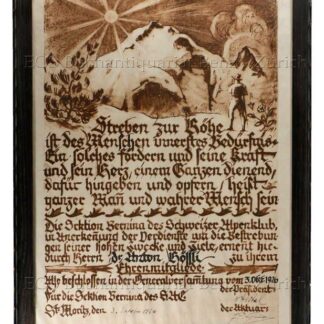 Streben zur Höhe
ist des Menschen innerstes Bedürfnis.
Ein solches fördern und seine Kraft
und sein Herz, einem Ganzen dienend,
dafür hingeben und opfern, heißt
ganzer Mann und wahrer Mensch sein
Die Sektion Bernina des Schweizer Alpenklub,
in Anerkennung der Verdienste um die Bestrebun-
gen seiner hohen Zwecke und Ziele, ernennt hie-
durch Herrn Dr Anton Gößli zu ihrem
Ehrenmitgliede
Also beschlossen in der Generalversammlung vom 3. Okt. 1926
Für die Sektion Bernina des S.A.C. der Präsident
St. Moritz, den der Aktuar